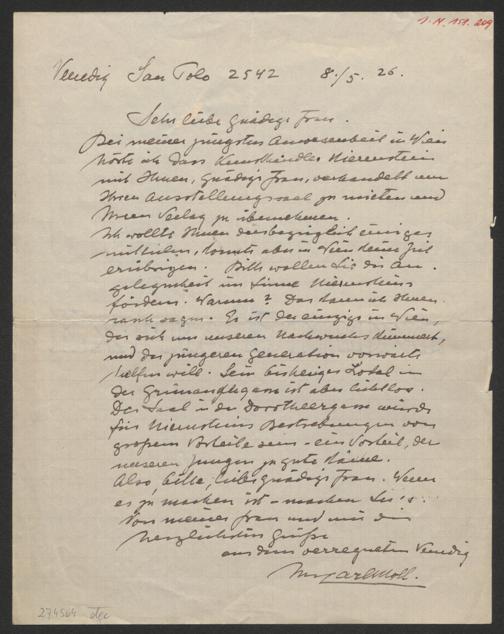 I.N. 151.209
Venedig San Polo 2542 8./5. 26.
Sehr liebe gnädige Frau.
Bei meiner jüngsten Anwesenheit in Wien
hörte ich dass Kunsthändler Nierenstein
mit Ihnen, gnädige Frau, verhandelt um
Ihren Ausstellungssaal zu mieten und
Ihren Verlag zu übernehmen.
Ich wollte Ihnen diesbezüglich einiges
mitteilen, konnte aber in Wien keine Zeit
erübrigen. Bitte wollen Sie die An-
gelegenheit im Sinne Nierensteins
fördern. Warum? Das kann ich Ihnen
rasch sagen. Es ist der einzige in Wien,
der sich um unseren Nachwuchs kümmert,
und der jüngeren Generation vorwärts
helfen will. Sein bisheriges Lokal in
der Grünangergasse ist aber lichtlos.
Der Saal in der Dorotheergasse würde
für Nierensteins Bestrebungen von
großem Vorteile sein - ein Vorteil, der
unseren Jungen zu gute käme.
Also, bitte, liebe gnädige Frau. Wenn
es zu machen ist - machen Sie's.
Von meiner Frau und mir die
herzlichsten Grüße
aus dem verregneten Venedig
Ihr Carl Moll.
274504